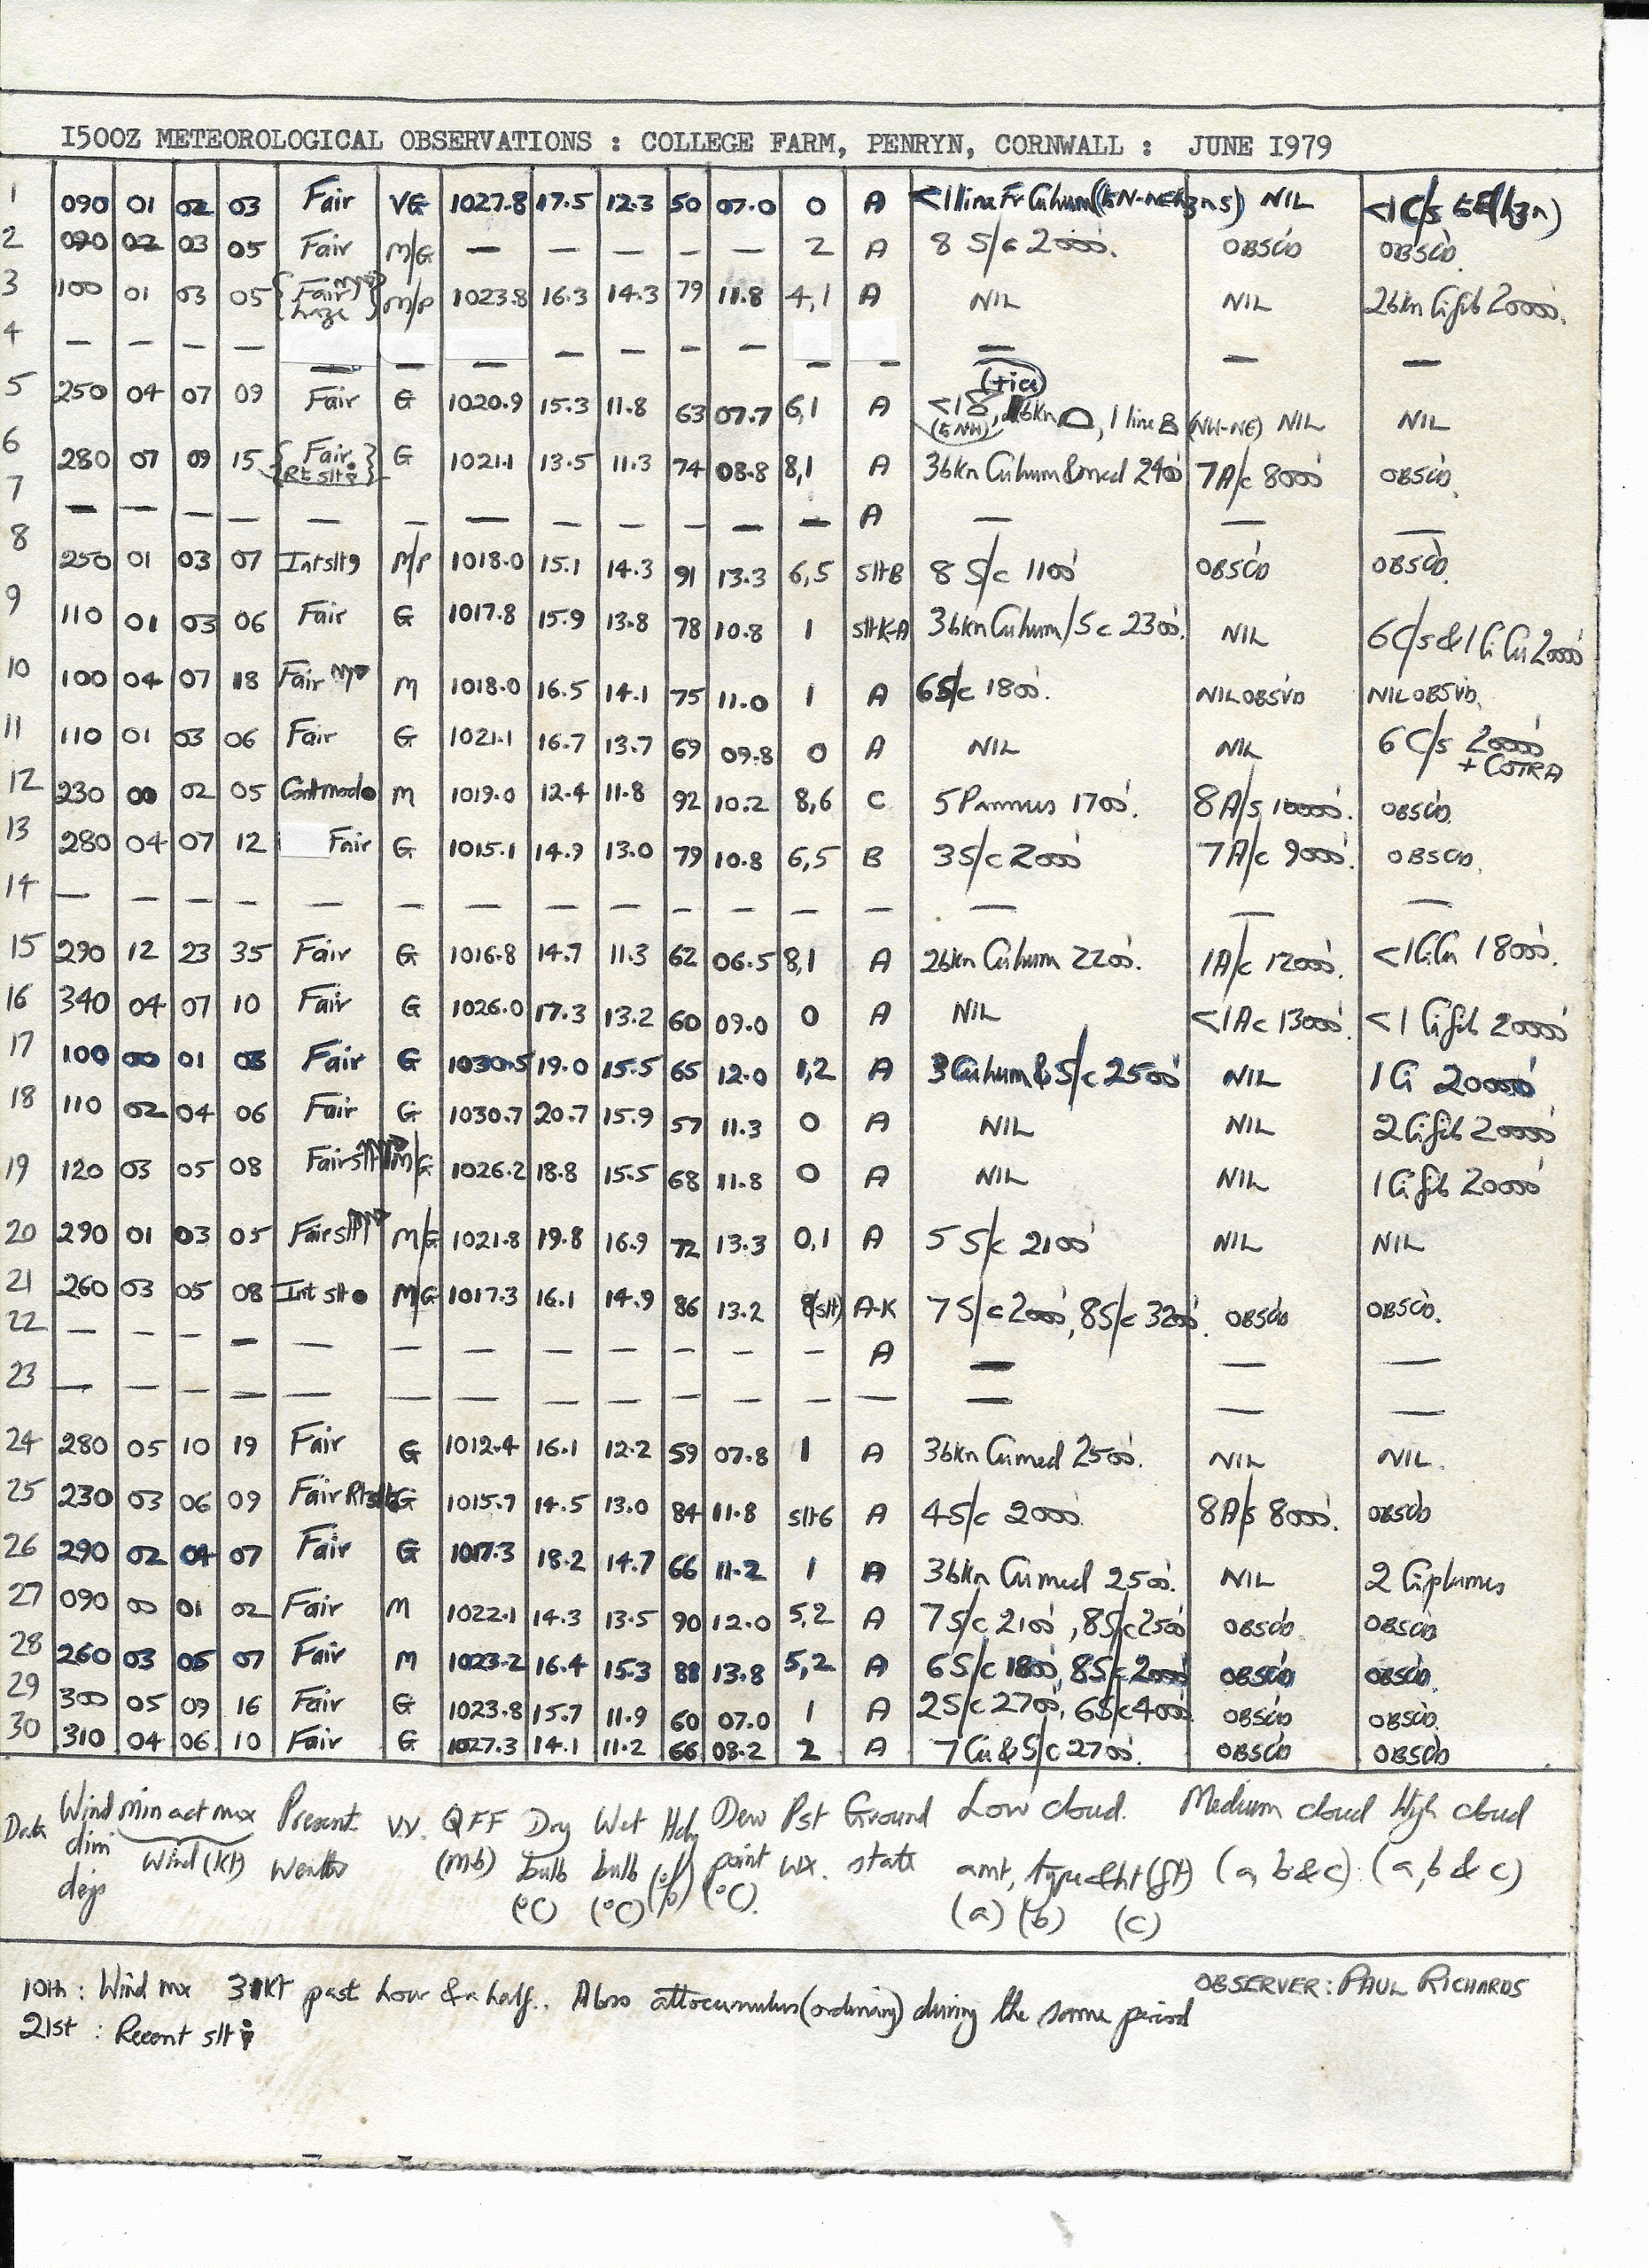 I500Z METEOROLOGICAL OBSERVATIONS : COLLEGE FARM, PENRYN, CORNWALL : JUNE I979
1 090 01 02 03 Fair VG 1027.8 17.5 12.3 50 07.0 0 A <1 line Fr Cuhum NIL <1 C/s
2 090 02 03 05 Fair M/G — — — — — 2 A 8 S/c 2000'. OBSCD OBSCD.
3 100 01 03 05 {Fair haze} M/P 1023.8 16.3 14.3 79 11.8 4,1 A NIL NIL 2bkn Cifib 20000'.
4 — — — — — — — — — — — — — — — —
5 250 04 07 09 Fair G 1020.9 15.3 11.8 63 07.7 6,1 A <18, bkn, 1 line (NW-NE) NIL NIL
6 280 07 09 15 {Fair Rt slt} G 1021.1 13.5 11.3 74 08.8 8,1 A 3bkn Cuhum&med 2400' 7A/c 8000' OBSCD.
7 — — — — — — — — — — — — A — — —
8 250 01 03 07 Int slt 9 M/P 1018.0 15.1 14.3 91 13.3 6,5 slt B 8 S/c 1100' OBSCD OBSCD.
9 110 01 03 06 Fair G 1017.8 15.9 13.8 78 10.8 1 slt K-A 3bkn Cuhum/Sc 2300'. NIL 6C/s & 1 CiCu 20000'
10 100 04 07 18 Fair M 1018.0 16.5 14.1 75 11.0 1 A 6S/c 1800'. NIL OBSVD NIL OBSVD.
11 110 01 03 06 Fair G 1021.1 16.7 13.7 69 09.8 0 A NIL NIL 6 C/s 20000' + COTRA
12 230 00 02 05 Cont mod ● M 1019.0 12.4 11.8 92 10.2 8,6 C 5 Pannus 1700'. 8A/s 10000'. OBSCD.
13 280 04 07 12 Fair G 1015.1 14.9 13.0 79 10.8 6,5 B 3S/c 2000' 7A/c 9000'. OBSCD.
14 — — — — — — — — — — — — — — — —
15 290 12 23 35 Fair G 1016.8 14.7 11.3 62 06.5 8,1 A 2bkn Cuhum 2200'. 1A/c 12000'. <1CiCu 18000'.
16 340 04 07 10 Fair G 1026.0 17.3 13.2 60 09.0 0 A NIL <1Ac 13000'. <1 Cifib 20000'
17 100 00 01 03 Fair G 1030.5 19.0 15.5 65 12.0 1,2 A 3 Cuhum & S/c 2500' NIL 1 Ci 20000'
18 110 02 04 06 Fair G 1030.7 20.7 15.9 57 11.3 0 A NIL NIL 2 Cifib 20000'
19 120 03 05 08 Fair slt M/G 1026.2 18.8 15.5 68 11.8 0 A NIL NIL 1 Cifib 20000'
20 290 01 03 05 Fair slt M/G 1021.8 19.8 16.9 72 13.3 0,1 A 5 S/c 2100' NIL NIL
21 260 03 05 08 Int slt ● M/G 1017.3 16.1 14.9 86 13.2 8(slt) A-K 7 S/c 2000', 8S/c 3200'. OBSCD OBSCD.
22 — — — — — — — — — — — — A — — —
23 — — — — — — — — — — — — — — — —
24 280 05 10 19 Fair G 1012.4 16.1 12.2 59 07.8 1 A 3bkn Cumed 2500'. NIL NIL.
25 230 03 06 09 Fair Rt slt G 1015.7 14.5 13.0 84 11.8 slt 6 A 4S/c 2000' 8A/s 8000'. OBSCD
26 290 02 04 07 Fair G 1017.3 18.2 14.7 66 11.2 1 A 3bkn Cumed 2500'. NIL 2 Ciplumes
27 090 00 01 02 Fair M 1022.1 14.3 13.5 90 12.0 5,2 A 7S/c 2100', 8S/c 2500' OBSCD OBSCD
28 260 03 05 07 Fair M 1023.2 16.4 15.3 88 13.8 5,2 A 6S/c 1800', 8S/c 2000' OBSCD OBSCD.
29 300 05 09 16 Fair G 1023.8 15.7 11.9 60 07.0 1 A 2S/c 2700', 6S/c 4000' OBSCD OBSCD.
30 310 04 06 10 Fair G 1027.3 14.1 11.2 66 08.2 2 A 7 Cu & S/c 2700'. OBSCD OBSCD
Date Wind dirn degs min act mx Wind (KT) Present Weather V.V. QFF (Mb) Dry bulb (°C) Wet bulb (°C) Hdy (%) Dew point (°C). Pst wx. Ground state Low cloud. amt, type & ht (ft) (a) (b) (c) Medium cloud (a, b & c) High cloud (a, b & c)
OBSERVER: PAUL RICHARDS
10th : Wind mx 31KT past hour & a half. Also altocumulus (ordinary) during the same period
21st : Recent slt